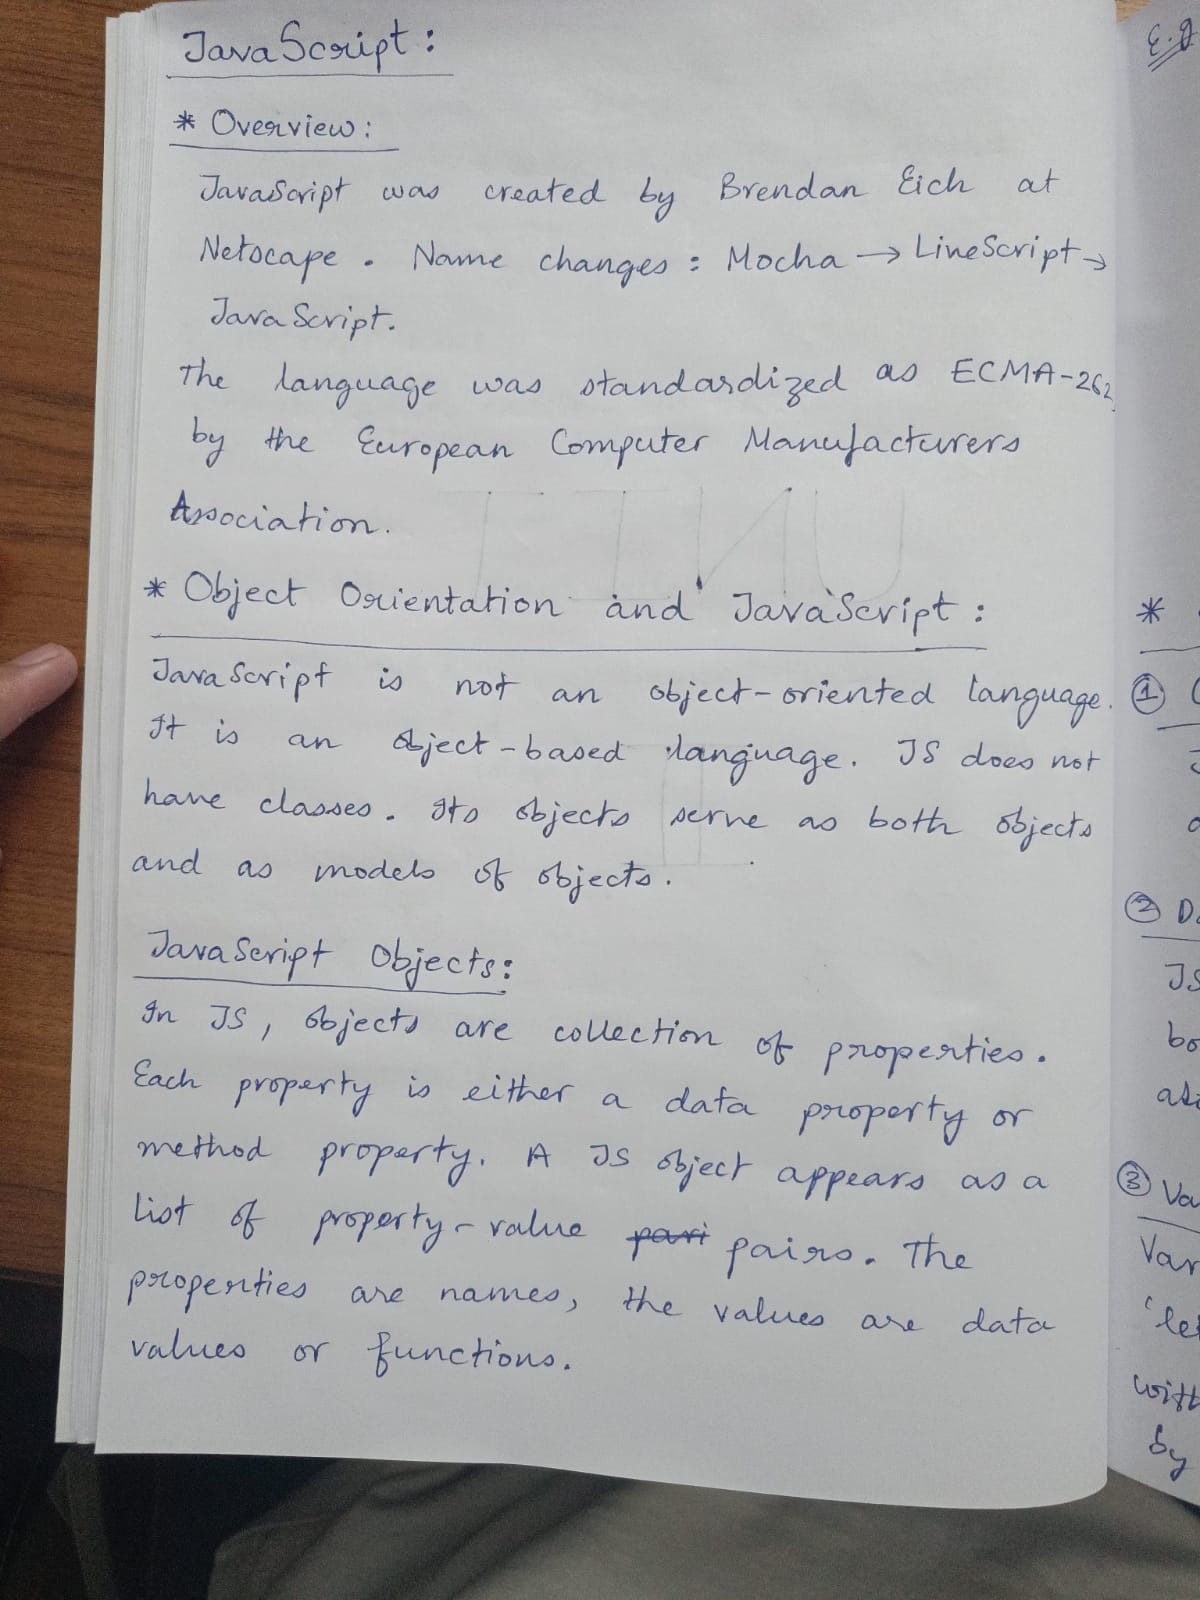 JavaScript:
* Overview:
JavaScript was created by Brendan Eich at
Netscape. Name changes: Mocha → LineScript →
JavaScript.
The language was standardized as ECMA-262,
by the European Computer Manufacturers
Association.
* Object Orientation and JavaScript:
JavaScript is not an object-oriented language.
It is an object-based language. JS does not
have classes. Its objects serve as both objects
and as models of objects.
JavaScript Objects:
In JS, objects are collection of properties.
Each property is either a data property or
method property. A JS object appears as a
list of property-value pari pairs. The
properties are names, the values are data
values or functions.
E.g
*
①
② D
JS
bo
③ Va
Var
'le
with
by